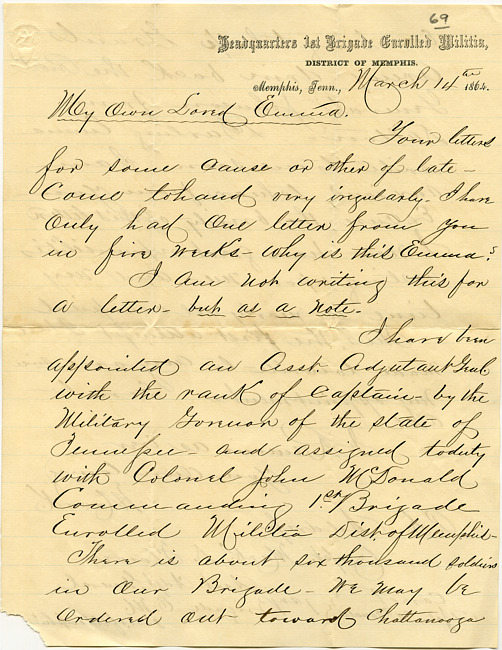 69
Headquarters 1st Brigade Enrolled Militia,
DISTRICT OF MEMPHIS.
Memphis, Tenn., March 14th 1864.
My Own Loved Emma.
Your letters
for some cause or other of late -
Come to hand very irregularly. I have
Only had One letter from you
in five weeks - why is this Emma?
I am not writing this for
a letter - but as a note.
I have been
appointed an Asst. Adjutant Genl
with the rank of Captain - by the
Military Govenor of the state of
Tennessee - and assigned to duty
with Colonel John McDonald
Commanding 1st Brigade
Enrolled Militia Dist of Memphis -
There is about six thousand soldiers
in Our Brigade - We may be
Ordered Out toward Chattanooga